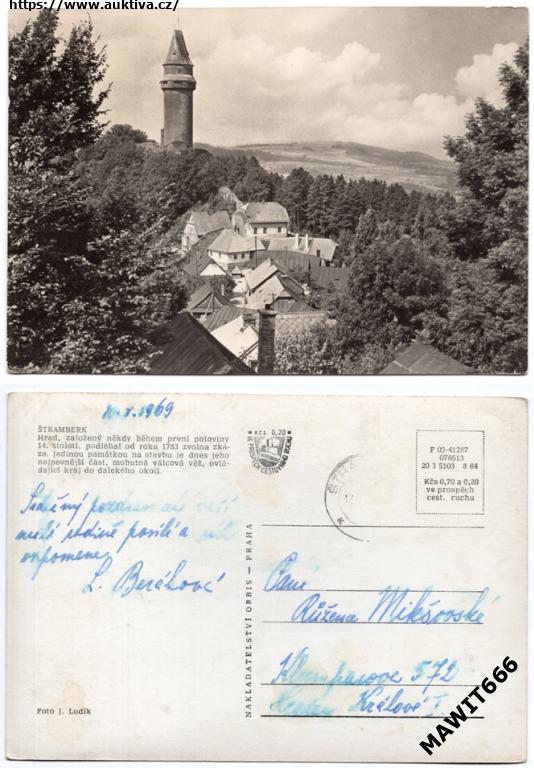 https://www.auktiva.cz/
10. X. 1969
ŠTRAMBERK
Hrad, založený někdy během první poloviny
14. století, podléhal od roku 1783 zvolna zká-
ze. Jedinou památkou na stavbu je dnes jeho
nejpevnější část, mohutná válcová věž, ovlá-
dající kraj do dalekého okolí.
Kčs 0,20
VE PROSPĚCH CESTOVNÍHO RUCHU
F 03-41287
076513
20 3 5103 8 64
Kčs 0,70 a 0,20
ve prospěch
cest. ruchu
Srdečný pozdrav
milé rodině posílá a
vzpomene
L. Beráková
NAKLADATELSTVÍ ORBIS — PRAHA
Paní
Růžena Mikšovská
572
Hradec Králové I.
Foto J. Ludík
MAWIT666